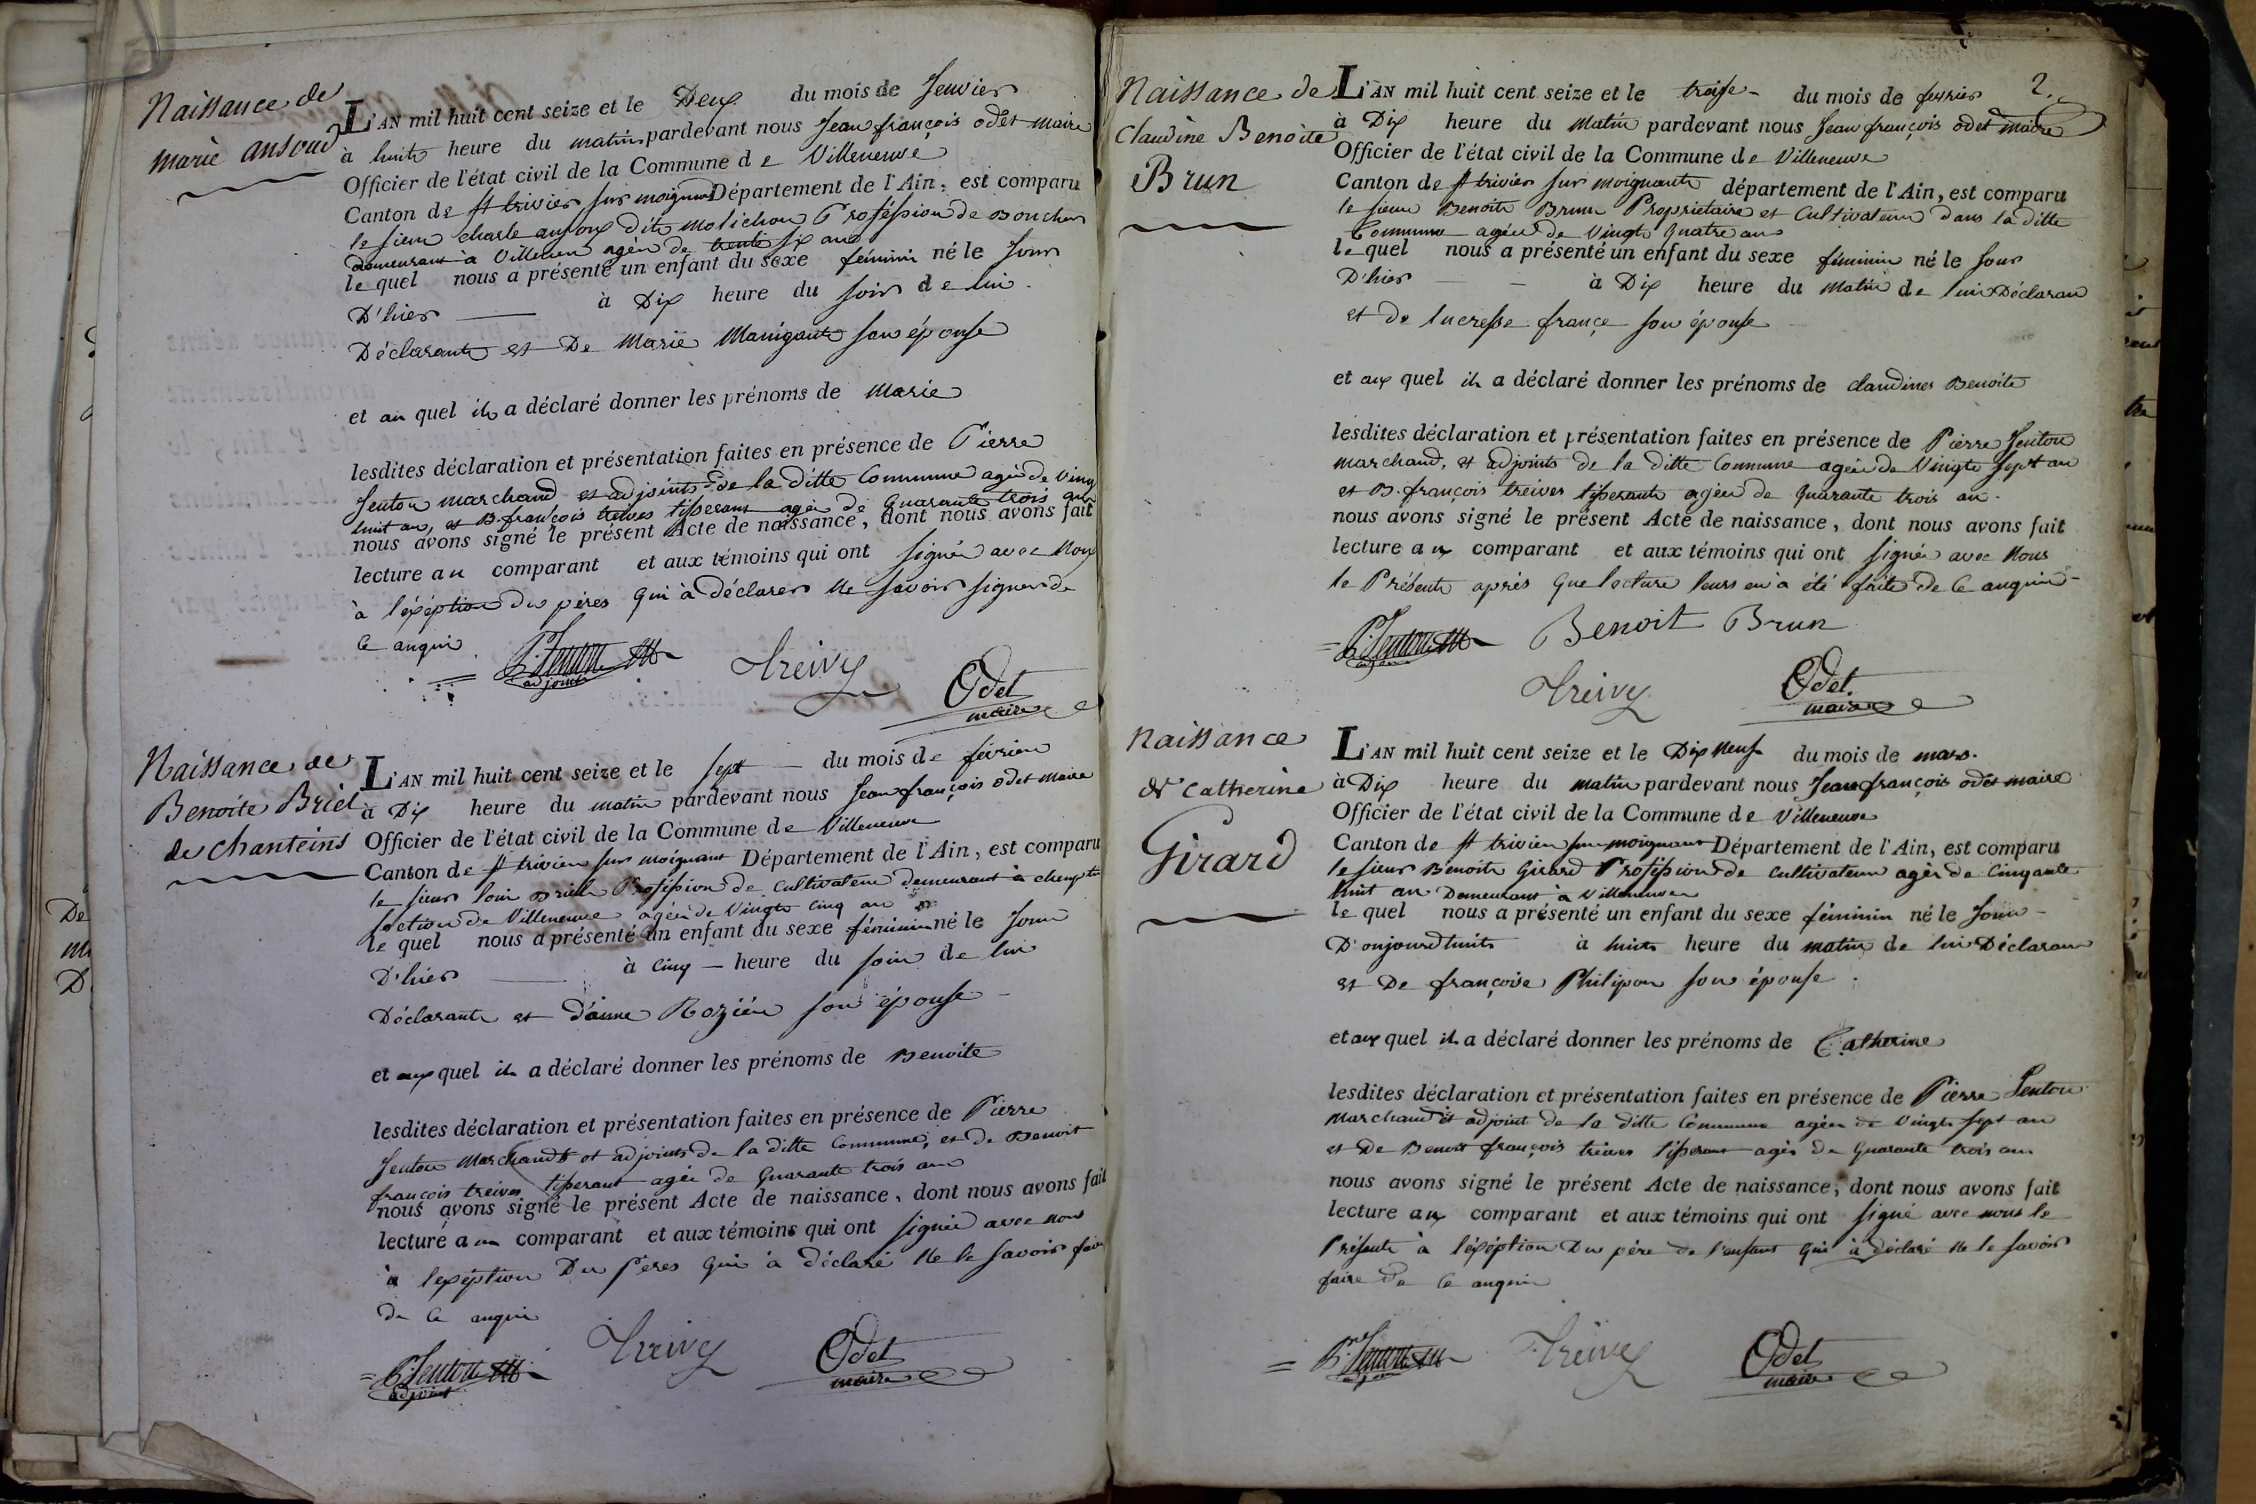 Naissance de
marie ansoud
L'AN mil huit cent seize et le Deux du mois de Jenvier
à huit heure du matin pardevant nous Jean françois odet maire
Officier de l'état civil de la Commune de Villeneuve
Canton de St trivier sur moignant Département de l'Ain, est comparu
le sieur charle ansoux dite molichon Proféssion de Boucher
demeurant a Villeneu agée de trente six ans
le quel nous a présenté un enfant du sexe féminin né le Jour
D'hier à Dix heure du soir de lui
Déclarante et De Marie Manigante son épouse
et au quel il a déclaré donner les prénoms de Marie
lesdites déclaration et présentation faites en présence de Pierre
Jenton marchand et adjoints de la ditte Commune agée de Vingt
huit an, et B. françois treives tisserant agée de Quarante trois ans
nous avons signé le présent Acte de naissance, dont nous avons fait
lecture au comparant et aux témoins qui ont signée avec Nous
à léxéption du péres qui à déclarer Ne savoir signer de
Ce anquie
P. Jenton
adjoint
Treive
Odet
maire
Naissance de
Benoite Briel
de chanteins
L'AN mil huit cent seize et le sept du mois de février
à Dix heure du matin pardevant nous Jean françois odet maire
Officier de l'état civil de la Commune de Villeneuve
Canton de St trivier sur moignant Département de l'Ain, est comparu
le sieur loui Briele Proféssion de cultivateur demeurant à
section de Villeneuve agée de Vingt cinq an
le quel nous a présenté un enfant du sexe féminin né le Jour
D'hier à cinq heure du soir de lui
Déclarante et d'anne Roziér son épouse
et aux quel il a déclaré donner les prénoms de Benoite
lesdites déclaration et présentation faites en présence de Pierre
Jenton Marchands et adjoints de la ditte Commune, et de Benoit
françois treives tisserant agée de Quarante trois ans
nous avons signé le présent Acte de naissance, dont nous avons fait
lecture au comparant et aux témoins qui ont signée avec nous
à lexéption Du Péres Qui à déclaré Ne le savoir faire
de Ce anquie
P. Jenton
adjoint
Treive
Odet
maire
2.
Naissance de
Claudine Benoite
Brun
L'AN mil huit cent seize et le treise du mois de fevrier
à Dix heure du Matin pardevant nous Jean françois odet maire
Officier de l'état civil de la Commune de Villeneuve
Canton de St trivier sur moignante département de l'Ain, est comparu
le sieur Benoite Brun Propriétaire et Cultivateur dans la ditte
Commune agée de Vingt Quatre ans
le quel nous a présenté un enfant du sexe féminin né le Jour
D'hier à Dix heure du Matin de lui Déclaran
et de lucresse françe son épouse
et aux quel il a déclaré donner les prénoms de claudines Benoite
lesdites déclaration et présentation faites en présence de Pierre Jenton
Marchand, et adjoints de la ditte Commune agée de Vingt sept an
et B. françois treives tisserante agée de Quarante trois an.
nous avons signé le présent Acte de naissance, dont nous avons fait
lecture aux comparant et aux témoins qui ont signée avec Nous
le Présente aprés Que lecture leurs en à été faite de Ce anquie
P. Jenton
adjoint
Benoit Brun
Treive
Odet
maire
Naissance
de Catherine
Girard
L'AN mil huit cent seize et le Dix Neuf du mois de mars.
à Dix heure du matin pardevant nous Jean françois odet maire
Officier de l'état civil de la Commune de Villeneuve
Canton de St trivier sur moignant Département de l'Ain, est comparu
le sieur Benoite Girard Proféssion de cultivateur agée de Cinquante
huit an Demeurant à Villeneuve
le quel nous a présenté un enfant du sexe féminin né le Jour
D'oujourdhuits à huits heure du matin de lui Déclaran
et De françoise Philipon son épouse
et aux quel il a déclaré donner les prénoms de Catherine
lesdites déclaration et présentation faites en présence de Pierre Jenton
Marchand et adjoint de la ditte Commune agée de Vingt sept an
et De Benoit françois treives tisserant agés de Quarante trois an
nous avons signé le présent Acte de naissance, dont nous avons fait
lecture aux comparant et aux témoins qui ont signé avec nous le
Présente à léxéption Du pére de l'enfant Qui à déclaré Ne le savoir
faire De Ce anquie
P. Jenton
adjoint
Treive
Odet
maire